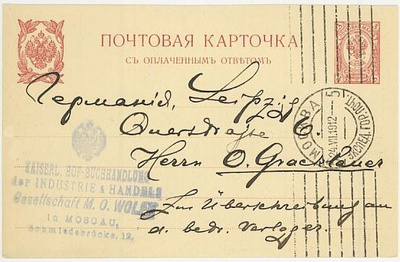 ПОЧТОВАЯ КАРТОЧКА
СЪ ОПЛАЧЕННЫМЪ ОТВѢТОМЪ.
МОСКВА 5
VII.1912
Германія, Leipzig
Querstrasse
Herrn O. Gracklauer
Zur Überschreibung an
d. betr. Verleger.
KAISERL. HOF-BUCHHANDLUNG
der INDUSTRIE & HANDELS
Gesellschaft M. O. WOLFF
in MOSCAU,
Schmiedebrücke, 12.